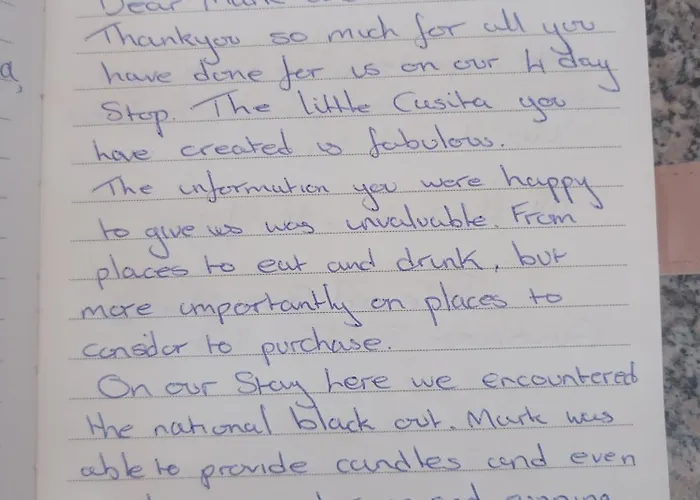 Dear Mark
Thankyou so much for all you
have done for us on our 4 day
Stop. The little Casita you
have created is fabulous.
The information you were happy
to give us was invaluable. From
places to eat and drink, but
more importantly on places to
consider to purchase.
On our Stay here we encountered
the national black out. Mark was
able to provide candles and even